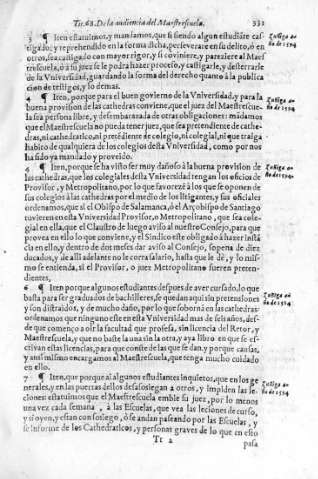 Tit.68. De la audiencia del Maestrescuela. 332
3 ¶ Iten estatuimos, y mandamos, que si siendo algun estudiãte cas-
tigado, y reprehendido en la forma dicha, perseverare en su delito, ò en
otros, sea castigado con mayor rigor, y si coviniere, y pareziere al Maes
trescuela, ò à su juez se le podra hazer processo, y castigarle, y desterrarle
de la Vniversidad, guardando la forma del derecho quanto à la publica
cion de testigos, y lo demas.
¶ Iten, porque para el buen govierno de la Vniversidad, y para la
buena provision de las cathedras conviene, que el juez del Maestrescue-
la sea persona libre, y desembarazada de otras obligaciones: mãdamos
que el Maestrescuela no pueda tener juez, que sea pretendiente de cathe-
dras, ni cathedratico, ni presidente de colegio, ni colegial, ni que traiga
habito de qualquiera de los colegios desta Vniversidad, como por nos
ha sido ya mandado y proveido.
¶ Iten, porque se ha visto ser muy dañoso à la buena provision de
las cathedras, que los colegiales desta Vniversidad tengan los oficios de
Provisor, y Metropolitano, por lo que favorezê à los que se oponen de
sus colegios à las cathedras por el medio de los litigantes, y sus oficiales
ordenamos, que si el Obispo de Salamanca, ò el Arçobispo de Santiago
tuvieren en esta Vniversidad Provisor, o Metropolitano, que sea cole-
gial en ella, que el Claustro de luego aviso al nuestro Consejo, para que
provea en ello lo que conviene, y el Sindico este obligado à hazer instã
cia en ello, y dentro de dos meses dar aviso al Consejo, sopena de diez
ducados, y de alli adelante no le corra salario, hasta que le dè, y lo mis-
mo se entienda, si el Provisor, o juez Metropolitano fueren preten-
dientes.
6 ¶ Iten porque algunos estudiantes despues de aver cursado, lo que
basta para ser graduados de bachilleres, se quedan aqui sin pretensiones
y son distraidos, y de mucho daño, por lo que sobornã en las cathedras:
ordenamos que ninguno este en esta Vniversidad mas de seis años, des-
de que començo a oir la facultad que profesa, sin licencia del Retor, y
Maestrescuela, y que no baste la una sin la otra, y aya libro en que se es-
crivan estas licencias, para que conste de las que se dan, y porque causas,
y ansi mismo encargamos al Maestrescuela, que tenga mucho cuidado
en ello.
7 ¶ Iten, que porque ai algunos estudiantes inquietos, que en los ge
nerales, y en las puertas dellos desasosiegan a otros, y impiden las le-
ciones: estatuimos que el Maestrescuela embie su juez, por lo menos
una vez cada semana, à las Escuelas, que vea las leciones de curso,
y si oyen, y estan con sosiego, ò se andan paseando por las Escuelas, y
se informe de los Cathedraticos, y personas graves de lo que en esto
Tt 2 pasa